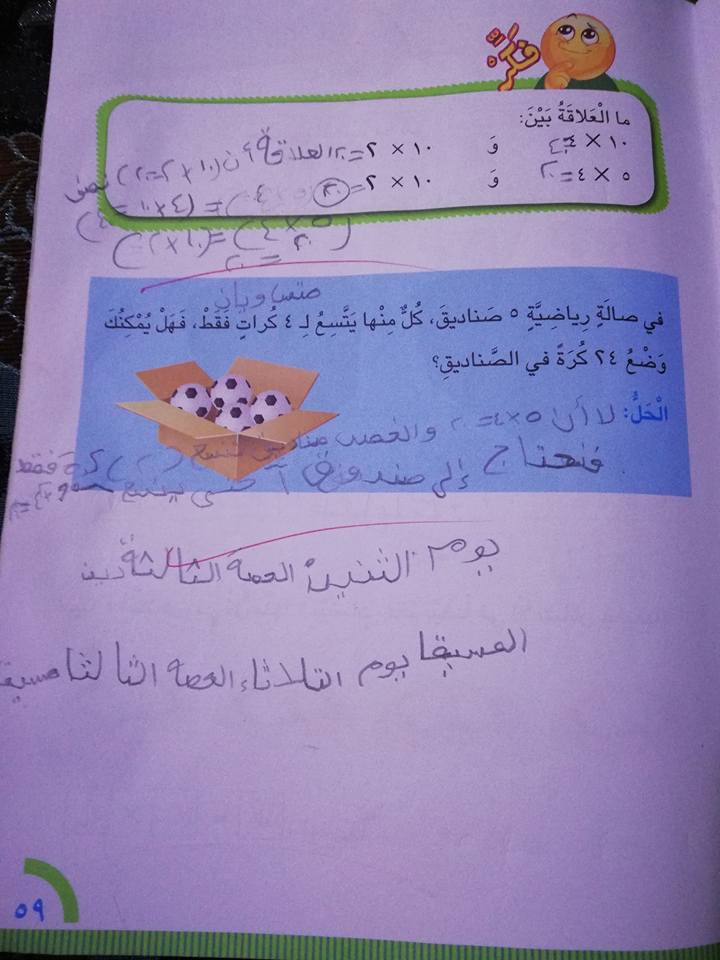 فَكِّرْ
ما الْعَلاقَةُ بَيْنَ:
١٠ × ٤ = ٤٠ وَ ١٠ × ٢ = ٢٠ العلاقة أن (١٠ × ٢ = ٢٠) نصف
٥ × ٤ = ٢٠ وَ ١٠ × ٢ = ٢٠ (٤ × ١٠ = ٤٠)
(٥ × ٤) = (١٠ × ٢)
٢٠ = ٢٠
متساويان
في صالَةٍ رِياضِيَّةٍ ٥ صَناديقَ، كُلٌّ مِنْها يَتَّسِعُ لِـ ٤ كُراتٍ فَقَطْ، فَهَلْ يُمْكِنُكَ
وَضْعُ ٢٤ كُرَةً في الصَّناديقِ؟
الْحَلُّ: لا أن ٥×٤=٢٠ والخمس صناديق تتسع (٢٠) كرة فقط
فنحتاج إلى صندوق آ حتى يتسع
يوم الثنين الحصة الثالثة دين
المسيقا يوم الثلاثاء الحصة الثالثا مسيقا
٥٩